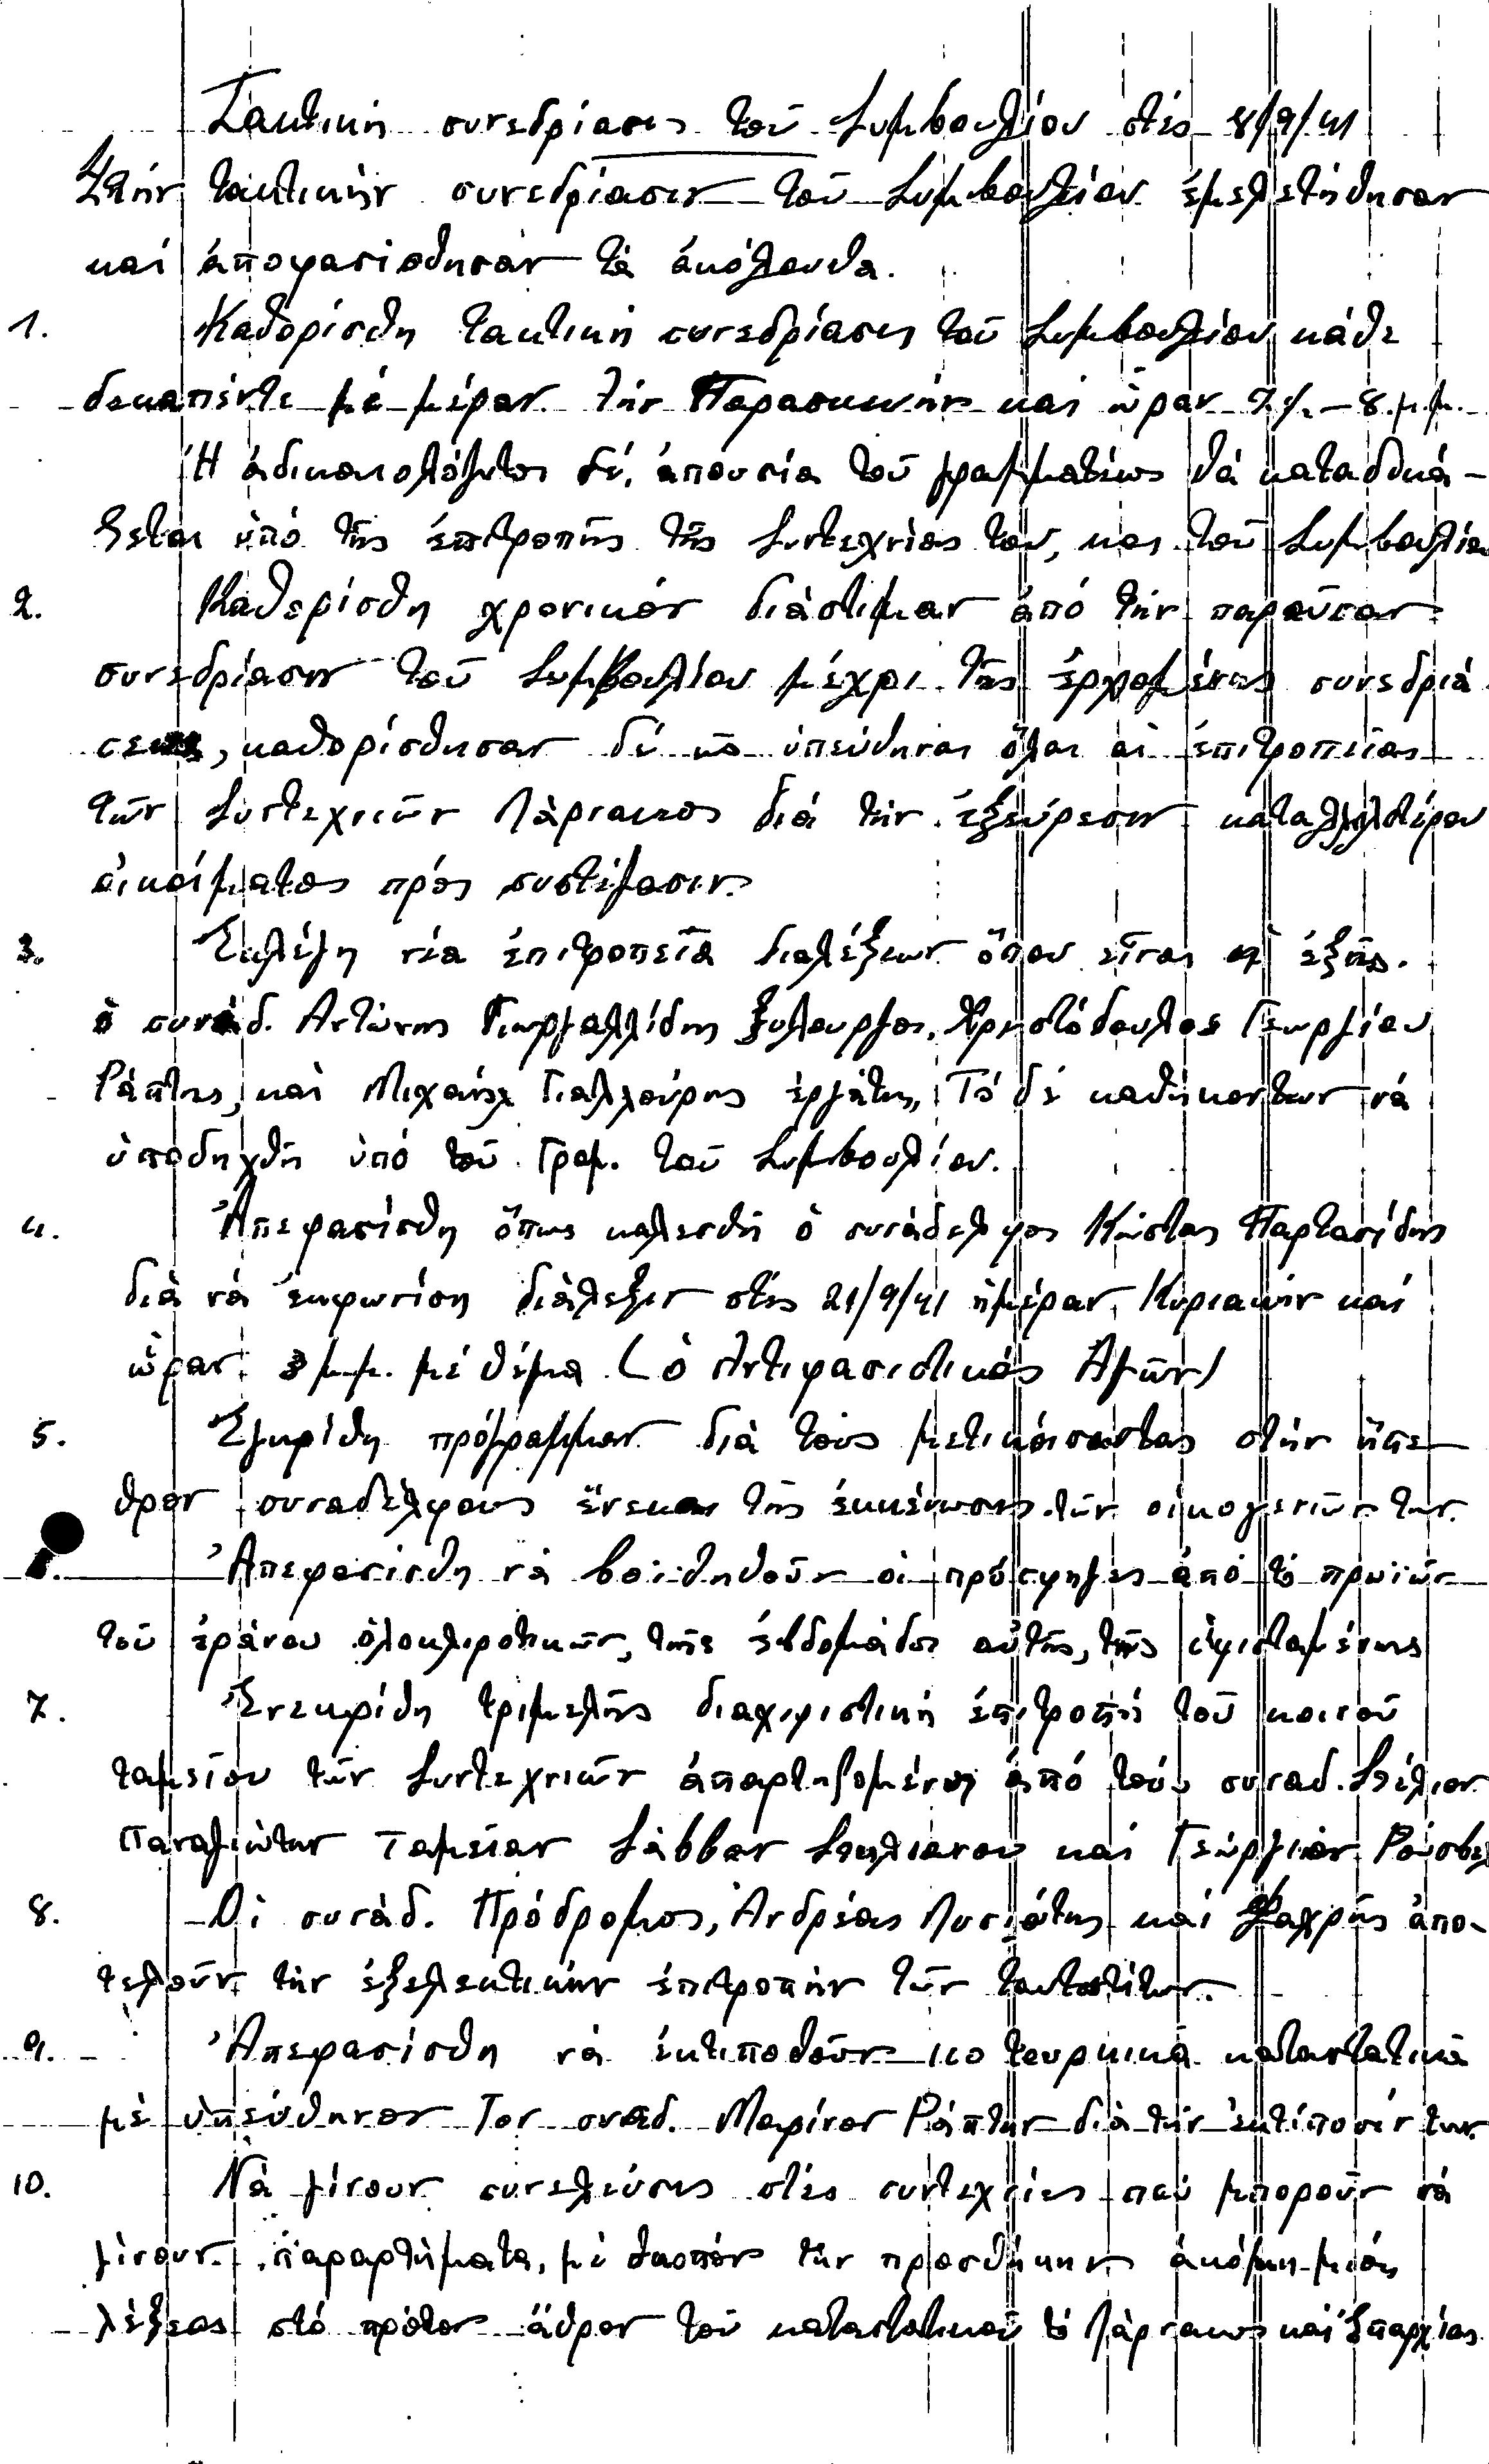 Τακτική συνεδρίασις τοῦ Συμβουλίου στές 8/9/41
Στήν τακτικήν συνεδρίασιν τοῦ Συμβουλίου ἐμελετήθησαν
καί ἀποφασίσθησαν τά ἀκόλουθα.
1. Καθορίσθη τακτική συνεδρίασις τοῦ Συμβουλίου κάθε
δεκαπέντε μέ μέραν τήν Παρασκευήν καί ὥραν 7½ – 8 μ.μ.
Ἡ ἀδικαιολόγητος δέ, ἀπουσία τοῦ γραμματέως θά καταδικά-
ζεται ὑπό τῆς ἐπιτροπῆς τῆς Συντεχνίας του, και τοῦ Συμβουλίου
2. Καθερίσθη χρονικόν διάστιμαν ἀπό τήν παροῦσαν
συνεδρίασιν τοῦ Συμβουλίου μέχρι τῆς ἐρχομένης συνεδριά
σεως, καθορίσθησαν δέ ὑπεύθηναι ὅλαι αἱ ἐπιτροπείαι
τῶν Συντεχνιῶν Λάρνακος διά τήν ἐξεύρεσιν καταλλιλοτέρου
οἰκοίματος πρός συστέγασιν.
3. Ἐκλέγη νέα ἐπιτροπεῖα διαλέξεων ὅπου εἶναι οἱ ἐξῆς.
ὁ συνάδ. Ἀντώνης Γιωργαλλίδης ξυλουργός, Χρηστόδουλος Γεωργίου
Ράπτης, καί Μιχαήλ Γιαλλούρης ἐργάτης, Τό δέ καθήκοντων νά
ὑποδηχθῆ ὑπό τοῦ Γραμ. τοῦ Συμβουλίου.
4. Ἀπεφασίσθη ὅπως καλεσθῆ ὁ συνάδελφος Κώστας Παρτασίδης
διά νά ἐκφωνίση διάλεξιν στές 21/9/41 ἡμέραν Κυριακήν καί
ὥραν 3 μ.μ. μέ θέμα (ὁ Ἀντιφασιστικός Ἀγῶν)
5. Ἐγκρίθη πρόγραμμαν διά τούς μετικοίσαντας στήν ὕπε
θρον συναδέλφους ἕνεκαν τῆς ἐκκένωσης τῶν οἰκογενιῶν των.
Ἀπεφασίσθη νά βοϊθηθοῦν οἱ πρόσφηγες ἀπό τό προϊών
τοῦ ἐράνου ὁλοκλιροτικῶς, τῆς ἑβδομάδος αὐτῆς, τῆς ὑφισταμένης
7. Ἐνεκρίθη τριμελῆς διαχιριστική ἐπιτροπή τοῦ κοινοῦ
ταμείου τῶν Συντεχνιῶν ἀπαρτιζομένη ἀπό τούς συναδ. Στέλιον
Παναγιώτην Ταμείαν Σάββαν Στυλιανου καί Γεώργιον Ρούσβελ
8. Οἱ συνάδ. Πρόδρομος, Ἀνδρέας Λυσιώτης καί Φαχρής ἀπο-
τελοῦν τήν ἐξελεκτικήν ἐπιτροπήν τῶν ταυτοτίτων.
9. Ἀπεφασίσθη νά ἐκτιποθοῦν τουρκικά καταστατικά
μέ ὑπεύθηνον Τον συνάδ. Μαρίνον Ράπτην διά τήν ἐκτίποσίν των.
10. Νά γίνουν συνελεύσις στές συντεχνίες πού μποροῦν νά
γίνουν παραρτήματα, μέ σκοπόν τήν προσθήκην ἀκόμη μιᾶς
λέξεος στό πρότον ἄθρον τοῦ καταστατικοῦ τό Λάρνακος καί Ἐπαρχίας